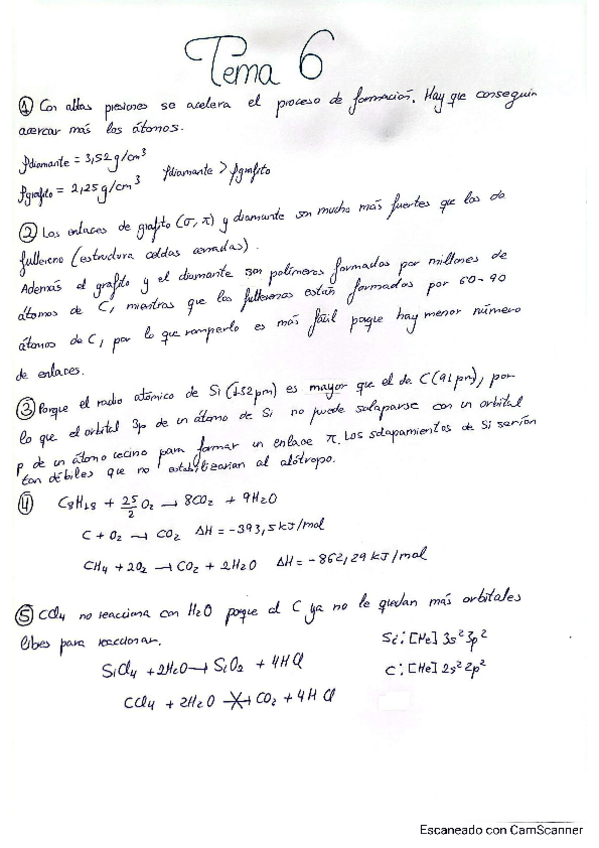 Tema 6
① Con altas presiones se acelera el proceso de formación. Hay que conseguir
acercar más los átomos.
ρdiamante = 3,52 g/cm³
ρgrafito = 2,25 g/cm³ ρdiamante > ρgrafito
② Los enlaces de grafito (σ, π) y diamante son mucho más fuertes que los de
fullereno (estructura celdas cerradas).
Además el grafito y el diamante son polímeros formados por millones de
átomos de C, mientras que los fullerenos están formados por 60-90
átomos de C, por lo que romperlo es más fácil porque hay menor número
de enlaces.
③ Porque el radio atómico de Si (132pm) es mayor que el de C (91 pm), por
lo que el orbital 3p de un átomo de Si no puede solaparse con un orbital
p de un átomo vecino para formar un enlace π. Los solapamientos de Si serían
tan débiles que no estabilizarían al alótropo.
④ C8H18 + 25/2 O2 → 8CO2 + 9H2O
C + O2 → CO2 ΔH = -393,5 kJ/mol
CH4 + 2O2 → CO2 + 2H2O ΔH = -862,29 kJ/mol
⑤ CCl4 no reacciona con H2O porque al C ya no le quedan más orbitales
libes para reaccionar.
Si: [Ne] 3s² 3p²
SiCl4 + 2H2O → SiO2 + 4HCl
C: [He] 2s² 2p²
CCl4 + 2H2O ↛ CO2 + 4HCl
Escaneado con CamScanner